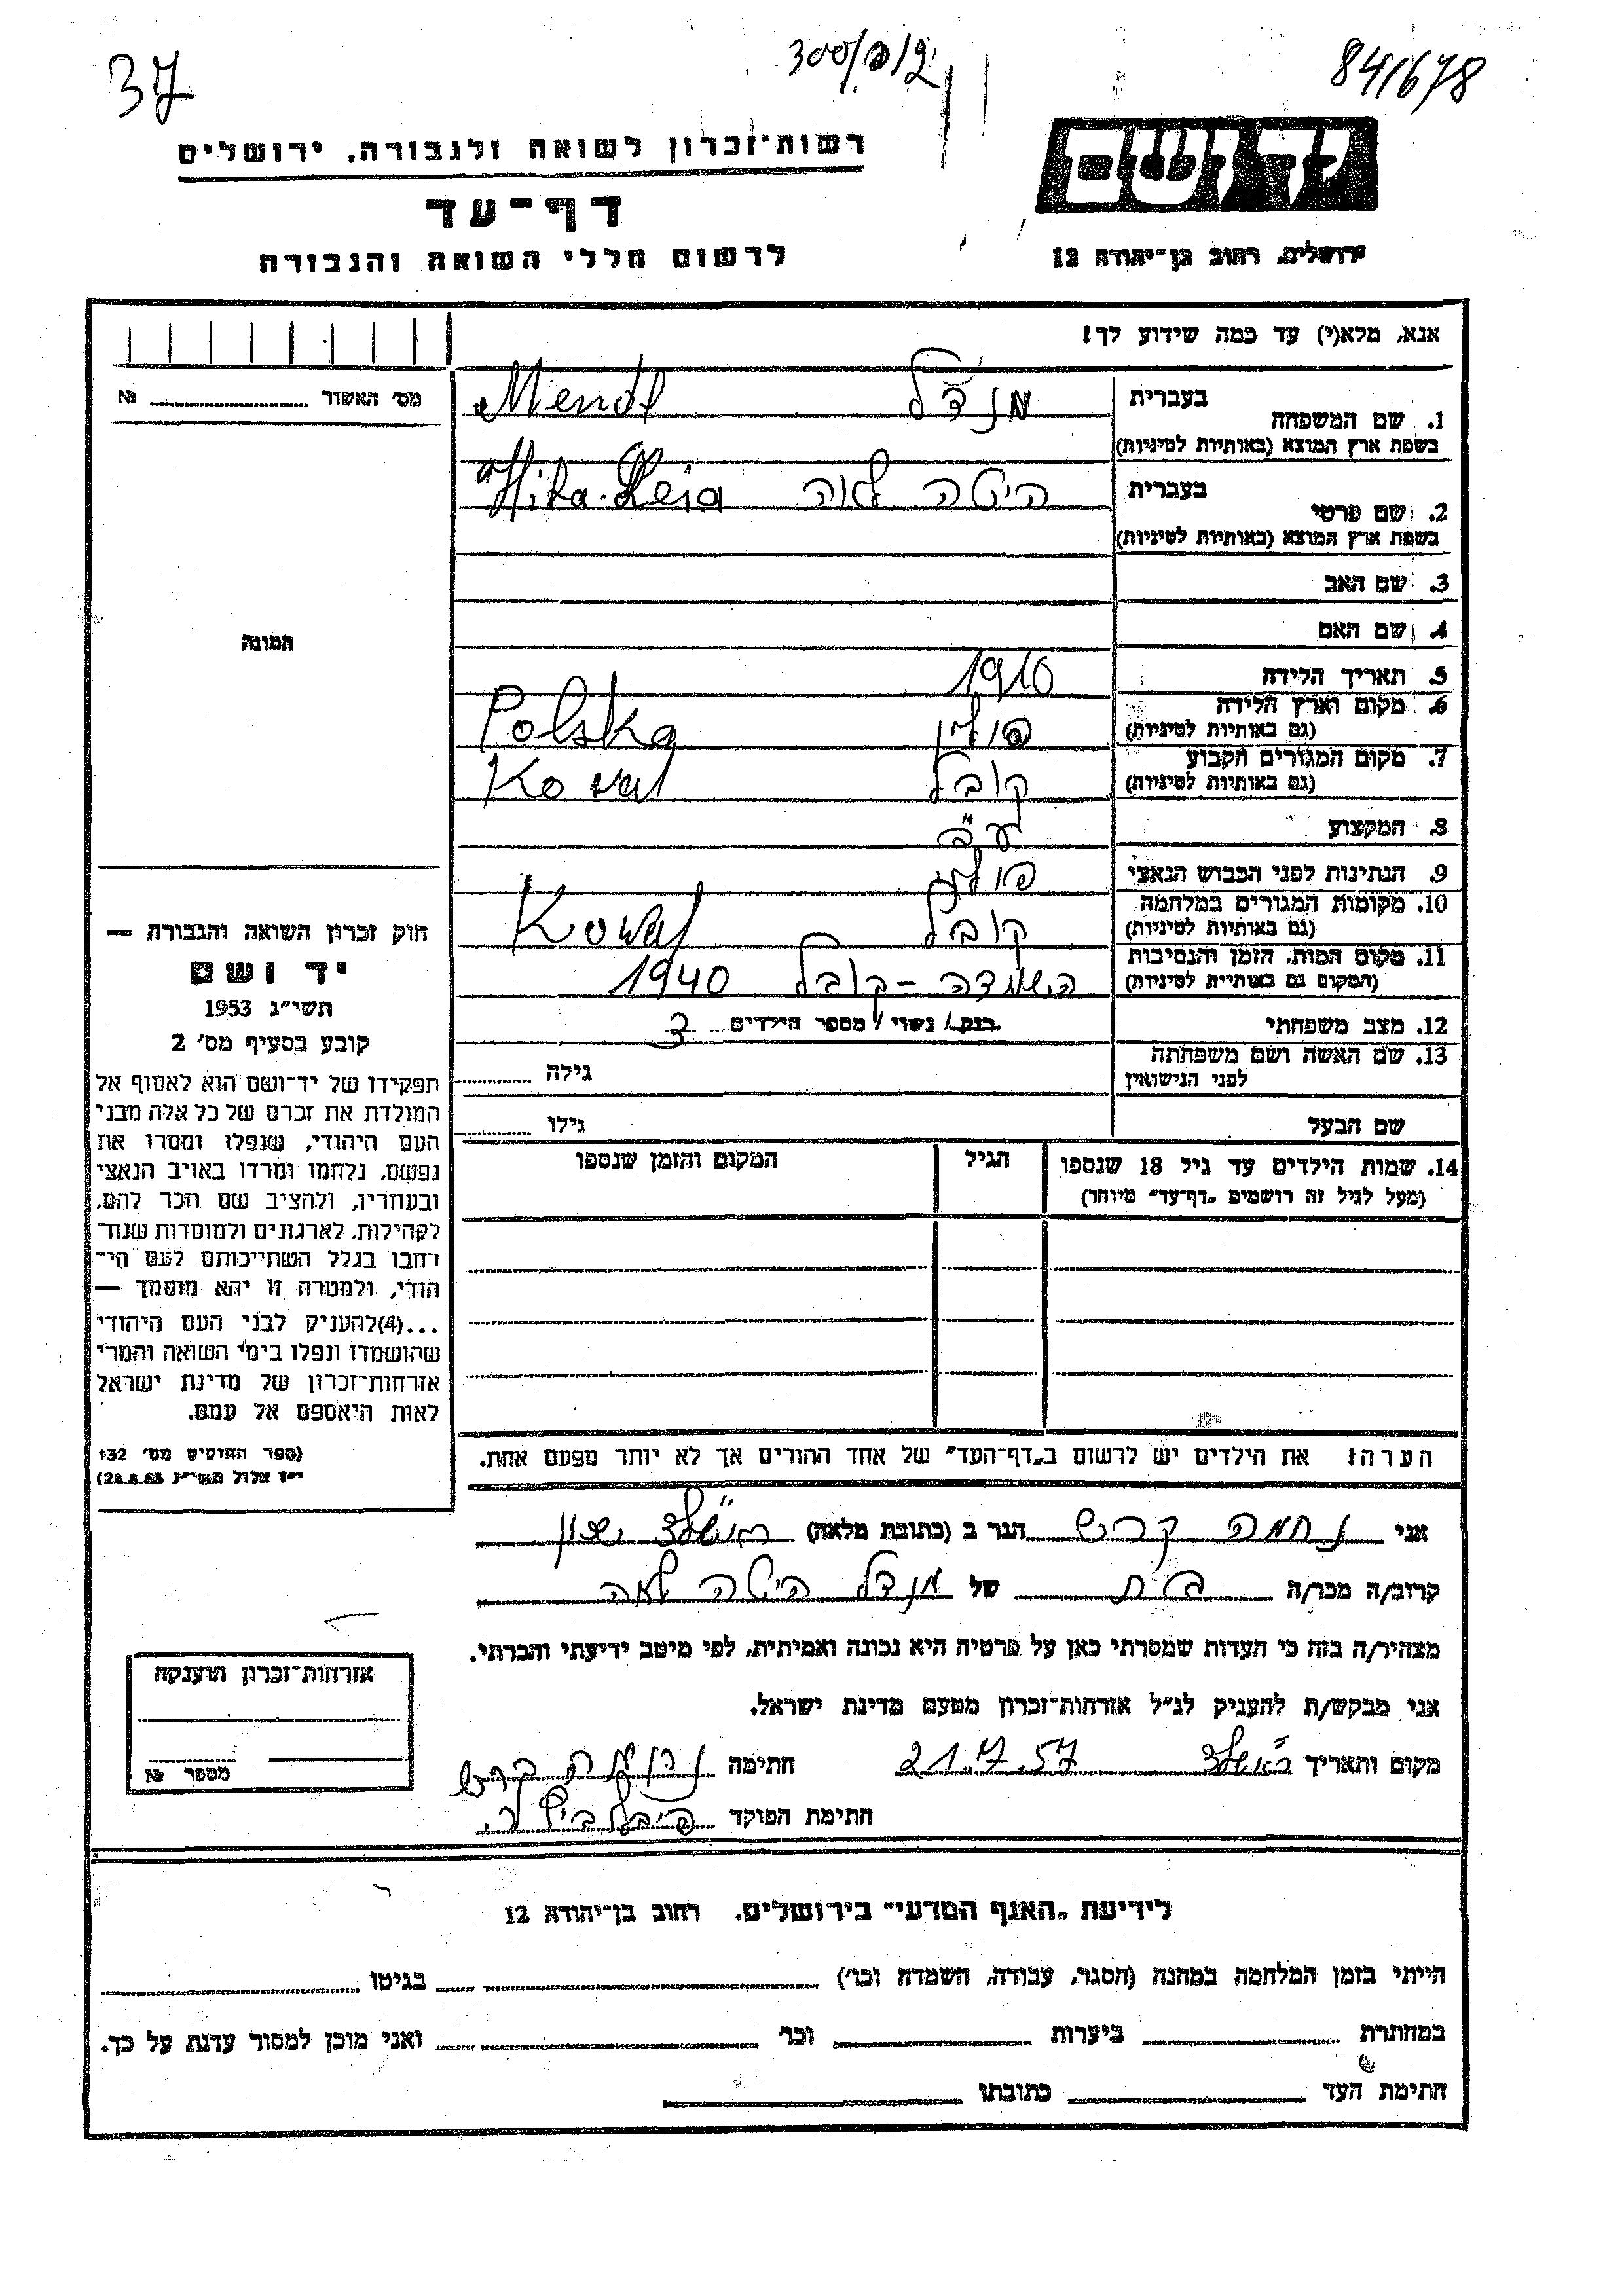 37
841678
רשות־זכרון לשואה ולגבורה, ירושלים
יד ושם
דף־עד
לרשום חללי השואה והגבורה
ירושלים, רחוב בן־יהודה 12
אנא, מלא(י) עד כמה שידוע לך!
מס׳ האשור № 
1. שם המשפחה בעברית מנדל Mendl
בשפת ארץ המוצא (באותיות לטיניות)
2. שם פרטי בעברית היטה לאה Hita-Leia
בשפת ארץ המוצא (באותיות לטיניות)
3. שם האב
4. שם האם
תמונה
5. תאריך הלידה 1910
6. מקום וארץ הלידה פולין Polska
(גם באותיות לטיניות)
7. מקום המגורים הקבוע קובל Koval
(גם באותיות לטיניות)
8. המקצוע עק״ב
9. הנתינות לפני הכבוש הנאצי פולין
10. מקומות המגורים במלחמה קובל Kowal
(גם באותיות לטיניות)
11. מקום המות, הזמן והנסיבות הושמדה - קובל 1940
(המקום גם באותיות לטיניות)
12. מצב משפחתי רווק/ נשוי/ מספר הילדים 3
13. שם האשה ושם משפחתה גילה
לפני הנישואין
שם הבעל גילו
14. שמות הילדים עד גיל 18 שנספו הגיל המקום והזמן שנספו
(מעל לגיל זה רושמים „דף־עד״ מיוחד)
חוק זכרון השואה והגבורה —
יד ושם
תשי״ג 1953
קובע בסעיף מס׳ 2
תפקידו של יד־ושם הוא לאסוף אל
המולדת את זכרם של כל אלה מבני
העם היהודי, שנפלו ומסרו את
נפשם, נלחמו ומרדו באויב הנאצי
ובעוזריו, ולהציב שם וזכר להם,
לקהילות, לארגונים ולמוסדות שנח־
רבו בגלל השתייכותם לעם הי־
הודי, ולמטרה זו יהא מוסמך —
...(4)להעניק לבני העם היהודי
שהושמדו ונפלו בימי השואה והמרי
אזרחות־זכרון של מדינת ישראל
לאות היאספם אל עמם.
(ספר החוקים מס׳ 132
י״ז אלול תשי״ג 28.8.53)
הערה: את הילדים יש לרשום ב„דף־העד״ של אחד ההורים אך לא יותר מפעם אחת.
אני נחמה קריש הגר ב (כתובת מלאה) ראשל״צ
קרוב/ה מכר/ה בת של מנדל היטה לאה
מצהיר/ה בזה כי העדות שמסרתי כאן על פרטיה היא נכונה ואמיתית, לפי מיטב ידיעתי והכרתי.
אני מבקש/ת להעניק לנ״ל אזרחות־זכרון מטעם מדינת ישראל.
מקום ותאריך ראשל״צ 21.7.57 חתימה נחמה קריש
חתימת הפוקד
אזרחות־זכרון הוענקה
מספר №
לידיעת „האגף המדעי״ בירושלים, רחוב בן־יהודה 12
הייתי בזמן המלחמה במחנה (הסגר, עבודה, השמדה וכו׳) בגיטו
במחתרת ביערות וכו׳ ואני מוכן למסור עדות על כך.
חתימת העד כתובתו